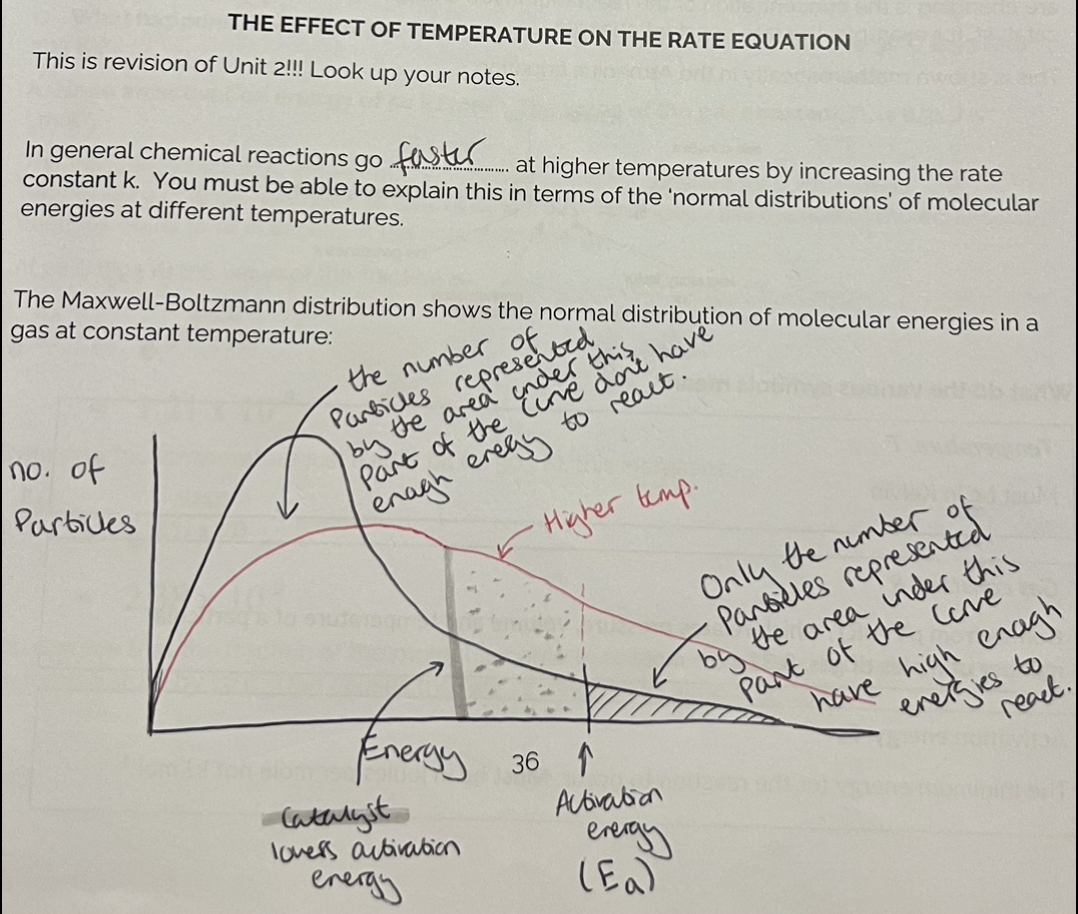 THE EFFECT OF TEMPERATURE ON THE RATE EQUATION
This is revision of Unit 2!!! Look up your notes.
In general chemical reactions go faster at higher temperatures by increasing the rate
constant k. You must be able to explain this in terms of the 'normal distributions' of molecular
energies at different temperatures.
The Maxwell-Boltzmann distribution shows the normal distribution of molecular energies in a
gas at constant temperature:
the number of
Particles represented
by the area under this
part of the curve dont have
enough energy to react.
no. of
Particles
Higher temp.
Only the number of
Particles represented
by the area under this
part of the curve
have high enough
energies to
react.
Energy
36
Catalyst
lowers activation
energy
Activation
energy
(Ea)